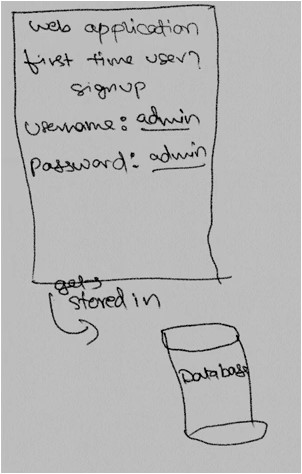 web application
first time user?
signup
username: admin
password: admin
gets
stored in
Database